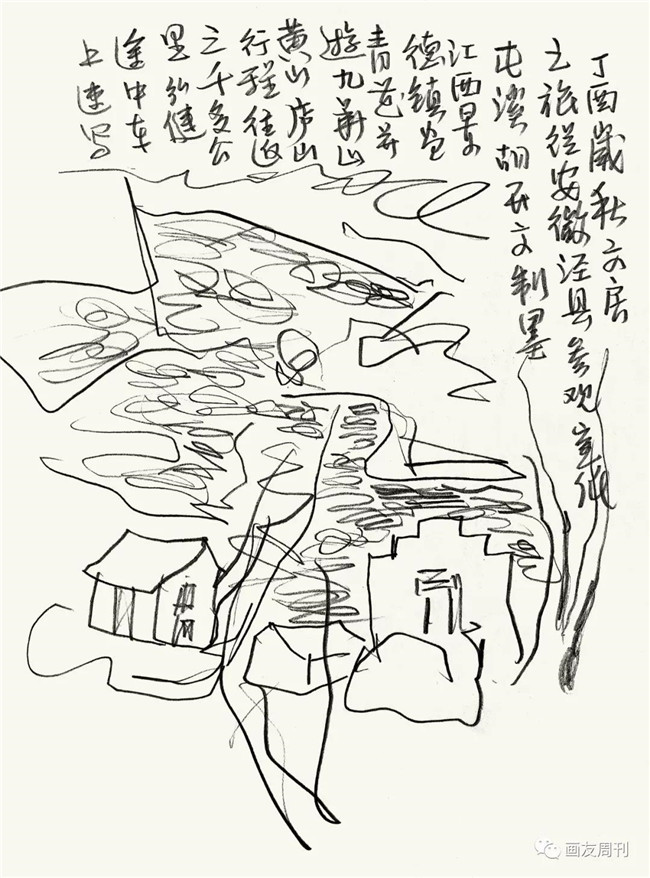 丁酉岁秋文房
之旅从安徽泾县参观宣纸
屯溪胡开文制墨
江西景
德镇瓷
青花并
游九华山
黄山庐山
行程往返
三千多公
里弘健
途中车
上速写
画友周刊